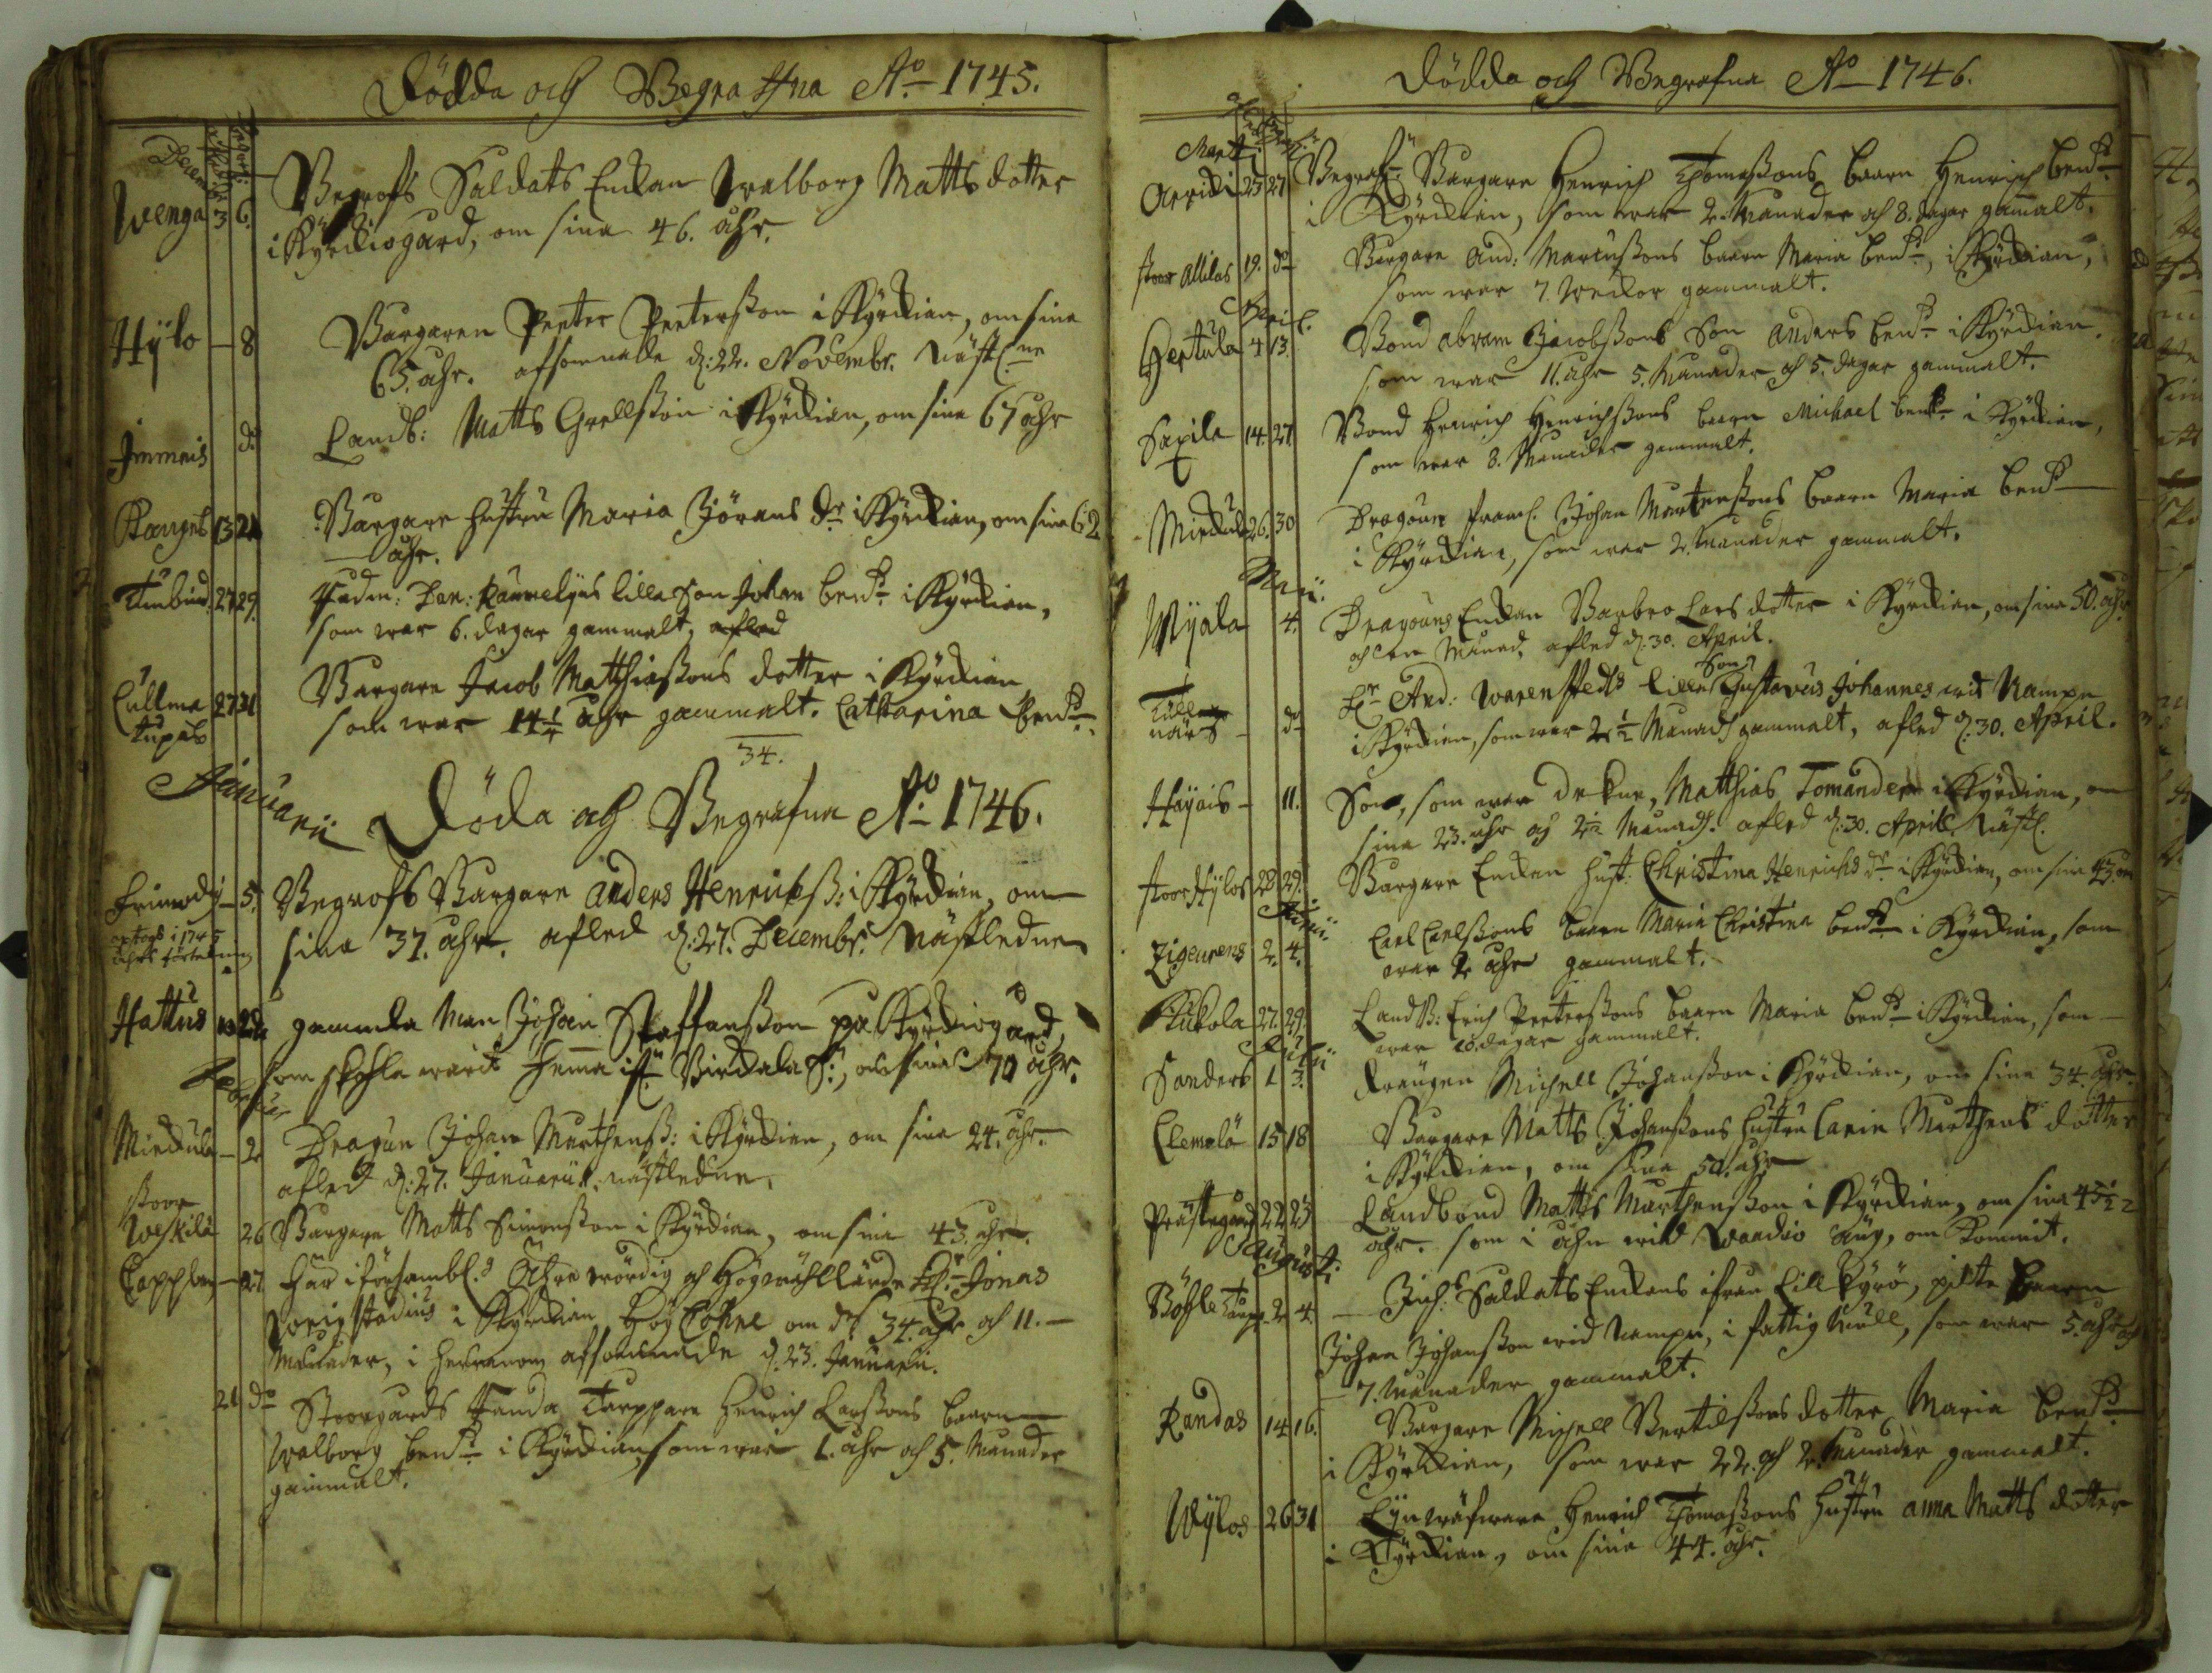 Dödda och Begrafna A:o 1745.
Decemb:
Wenga 3 6. Begrofs Saldats Enkan Walborg Matts dotter
i Kyrckiogård, om sina 46. åhr.
Hylo — 8 Bargaren Peeter Peetersson i Kyrckian, om sina
65. åhr. afsomnade d: 22. Novembr. Nästl:ne
Immais d:o Landb: Matts Grellsson i Kyrckian, om sina 67 åhr
13 24 Bargare hustru Maria Jörans d:r i Kyrckian, om sina 62
åhr.
27 29. Dan: lilla Son Johan ben:d i Kyrckian,
som war 6. dagar gammalt, afled
Cullma 27 31 Bargare Jacob Matthiassons dotter i Kyrckian
som war 14 1/4 åhr gammalt. Catharina ben:d
34.
Januarii
Döda och Begrafna A:o 1746.
5. Begrofs Bargare Anders Henrikss: i Kyrckian, om
i 1745 sina 37. åhr. afled d: 27. Decembr. Nästledne
åhrs
Hattus gamla Man Johan Staffansson på Kyrckiogård,
som skohla warit hema if: Virdala S:, om sina 70 åhr.
Februar
Mickula — 2 Dragun Johan Murthenss: i Kyrckian, om sina 24. åhr.
afled d: 27. Januarii nästledne.
stoor
Weskila 26 Bargare Matts Simonsson i Kyrckian, om sina 43. åhr.
Capplan — 27 här i försambl:s Ährewördig och Högwählärde H:r Jonas
i Kyrckian, om des 34. åhr och 11.
Månader, i herranom afsomnade d: 23. Januarii.
21 d:o Stoorgårds Henrich Larssons baarn
Walborg ben:d i Kyrckian, som war 1. åhr och 5. Månader
gammalt.
Dödda och Begrafna A:o 1746.
Martii
Arridi 25 27 Begrafs Bargare Henrich Thomassons baarn Henrich ben:d
i Kyrckian, som war 2. Månader och 8. dagar gammalt.
stoor Allilas 19. d:o Bargare And: Marcussons baarn Maria ben:d, i Kyrckian,
som war 7. Weckor gammalt.
April.
Hertula 4 13. Bond Abram Jacobssons Son Anders ben:d i Kyrckian.
som war 11. åhr 5. Månader och 5. dagar gammalt.
Saxila 14. 27 Bond Henrich Henrichssons baarn Michael ben:d i Kyrckian,
som war 8. Månader gammalt.
Mickula 26. 30 Dragoun Johan Murtenssons baarn Maria ben:d
i Kyrckian, som war 2. Månader gammalt.
Maii.
Myala 4. Dragouns Enkan Barbro Lars dotter i Kyrckian, om sina 50. åhr
och en Månad, afled d: 30. April.
Tull
när d:o H:r And: Warenstedts lilla Son Gustavus Johannes wid Nampn
i Kyrckian, som war 2 1/2 Månad gammalt, afled d: 30. April.
Häyäis — 11. Son, som war Matthias Tomander i Kyrckian, om
sina 23. åhr och 2 1/2 Månad. afled d: 30. April Nästl.
stoor Hylos 28 29. Bargare Enkan hust: Christina Henrichs d:r i Kyrckian, om sina 43.
Junii.
Zigeurens 2. 4. Carl Carlssons baarn Maria Christina ben:d i Kyrckian, som
war 2 åhr gammalt.
Kukola 27. 29. LandB: Erich Peeterssons baarn Maria ben:d i Kyrckian, som
war 10. dagar gammalt.
Julii
Sanders 1 3. Drängen Michell Johansson i Kyrckian, om sina 34. åhr.
Clemola 15 18 Bargare Matts Johanssons hustru Carin Murthens dotter
i Kyrckian, om sina 50. åhr
Prästegård 22 23 Landbond Matts Murthensson i Kyrckian, om sina 45 1/2
åhr. som i åhn wid omkommit.
Augusti
2. 4. Saldats Enkans ifrån Lill Kyrö, pilte baarn
Johan Johansson wid nampn, i fattig som war 5. åhr och
7. Månader gammalt.
Randas 14 16. Bargare Michell Bertilssons dotter Maria ben:d
i Kyrckian, som war 22. och 2. Månader gammalt.
Wylos 26 31 Henrich Thomassons hustru Anna Matts dotter
i Kyrckian, om sina 44. åhr.